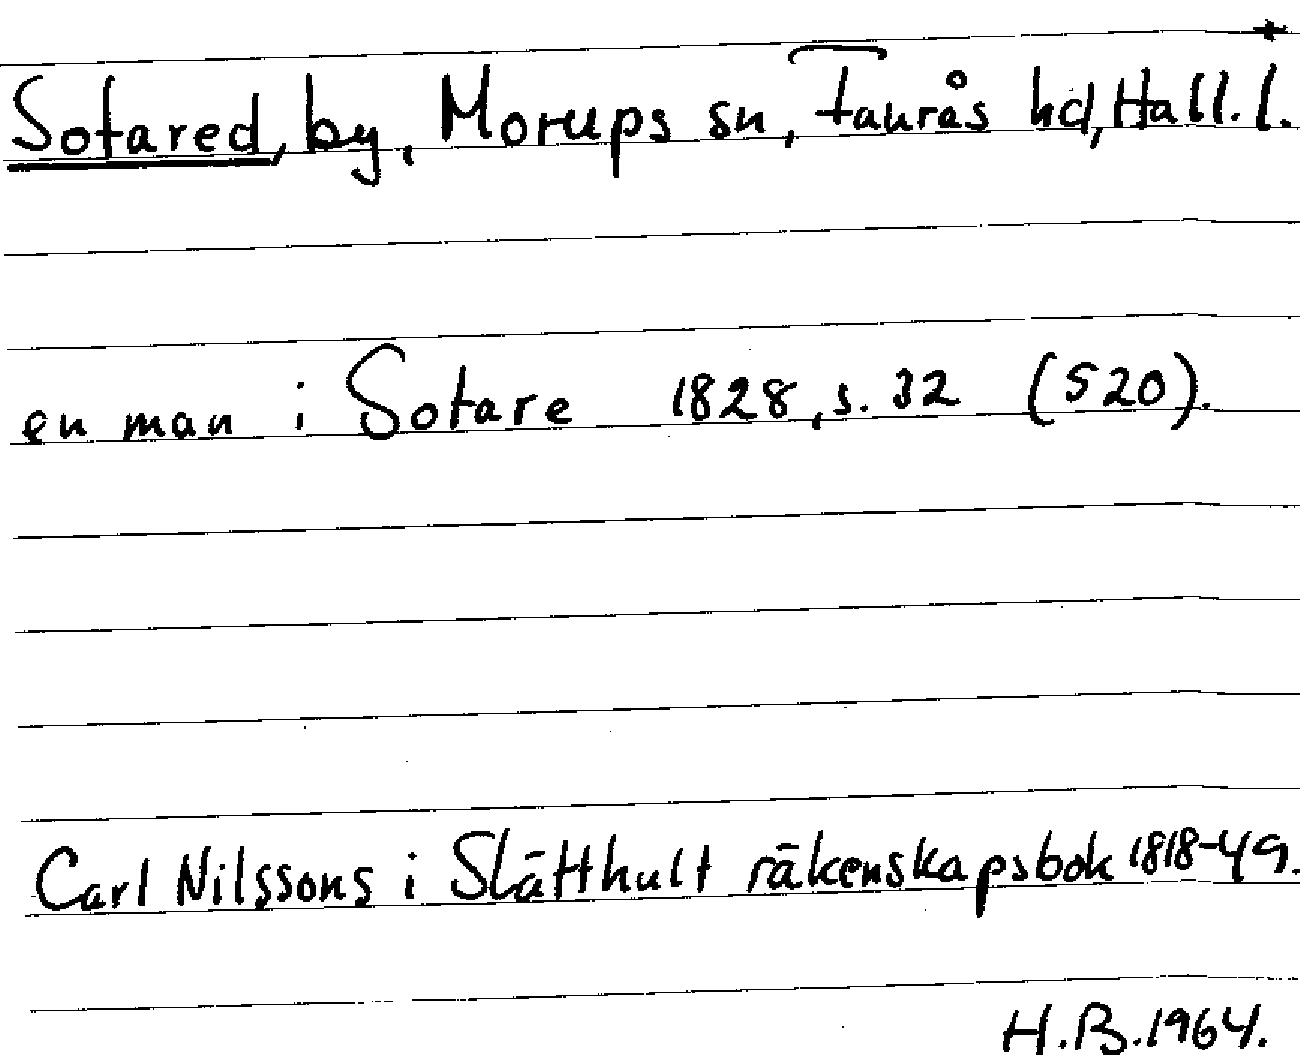 Sotared, by, Morups sn, Faurås hd, Hall. l.
en man i Sotare 1828, s. 32 (520).
Carl Nilssons i Slätthult räkenskapsbok 1818-49.
H.B. 1964.